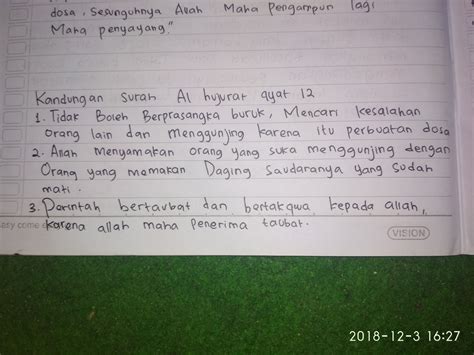 dosa, Sesungguhnya Allah Maha Pengampun lagi
Maha penyayang."
Kandungan surah Al hujurat ayat 12
1. Tidak Boleh Berprasangka buruk, Mencari kesalahan
orang lain dan menggunjing karena itu perbuatan dosa
2. Allah menyamakan orang yang suka menggunjing dengan
Orang yang memakan Daging Saudaranya yang sudah
mati.
3. Perintah bertaubat dan bertakqwa kepada allah,
karena allah maha penerima taubat.
easy come
VISION
2018-12-3 16:27